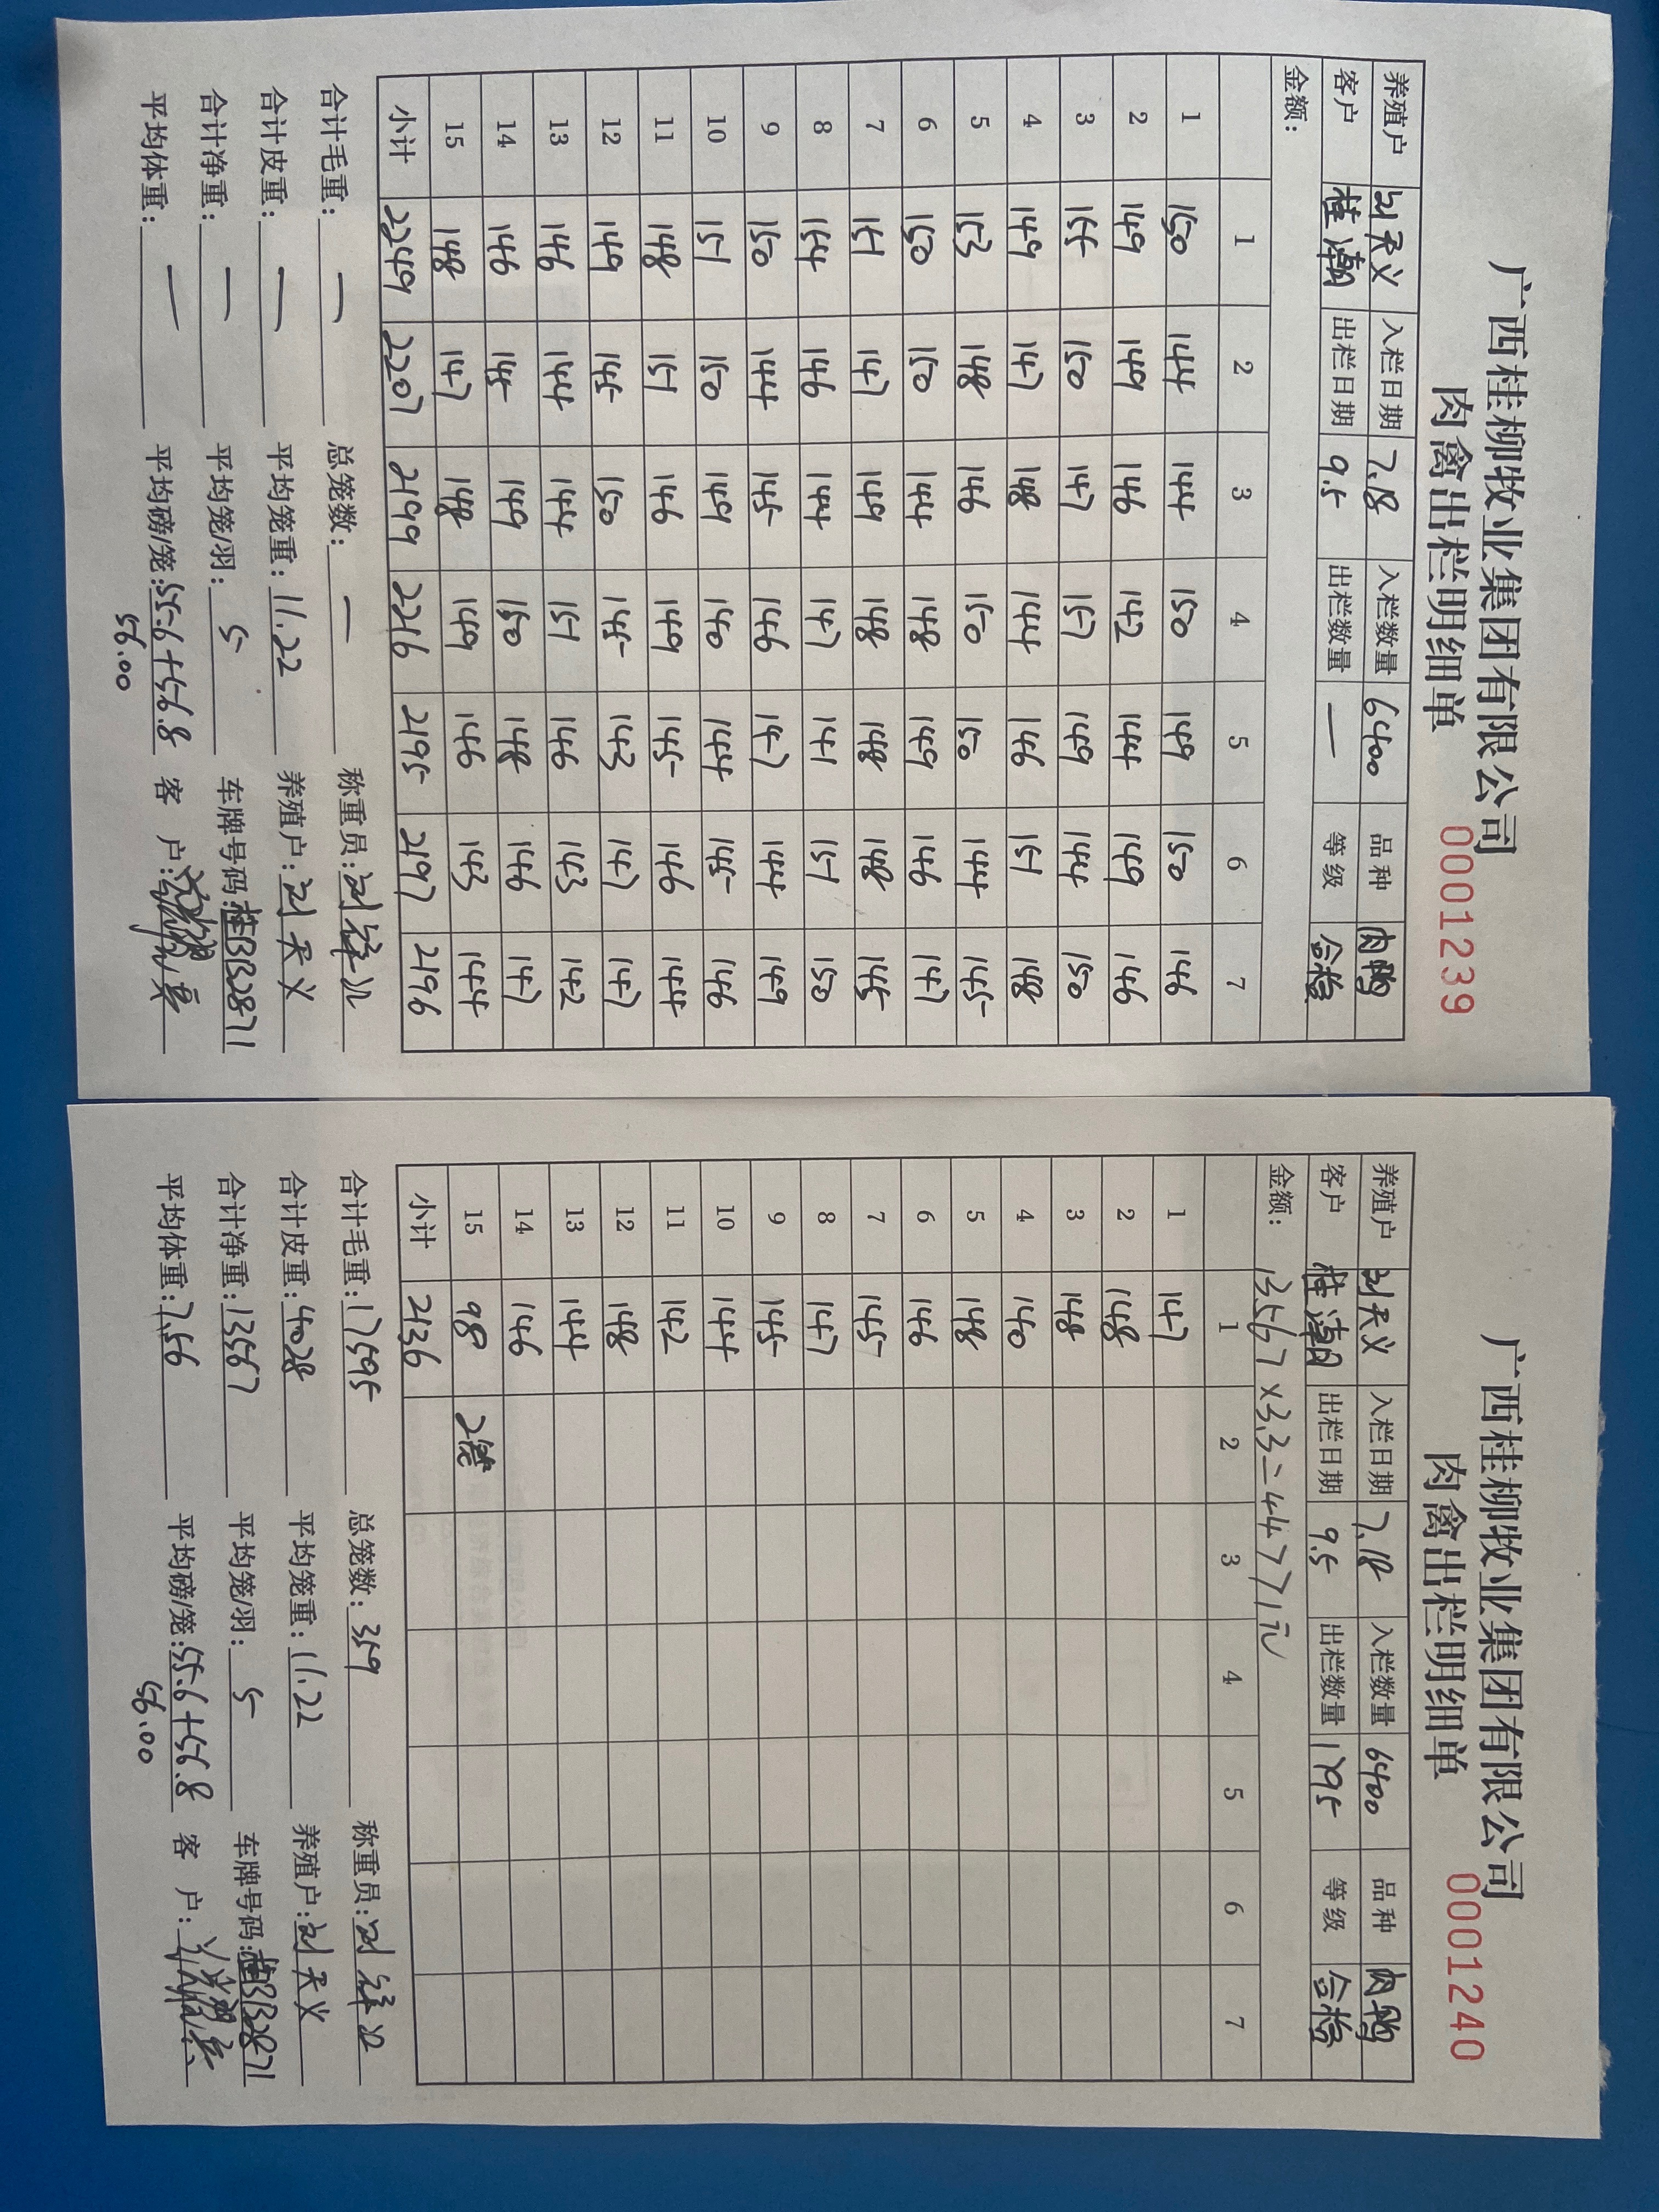 广西桂柳牧业集团有限公司
肉禽出栏明细单
0001239
养殖户 刘天义 入栏日期 7.18 入栏数量 6400 品种 肉鸭
客户 桂潮 出栏日期 9.5 出栏数量 — 等级 合格
金额:
1 2 3 4 5 6 7
1 150 144 144 150 149 150 146
2 149 149 146 142 144 149 146
3 154 150 147 157 149 144 150
4 149 147 148 144 146 151 148
5 153 148 146 150 150 144 145
6 150 150 144 148 149 146 147
7 151 147 149 148 148 148 145
8 154 146 144 147 141 151 150
9 150 144 145 146 147 144 149
10 151 150 149 140 144 145 146
11 148 151 146 149 145 146 144
12 149 145 150 145 143 147 147
13 146 144 144 151 146 143 142
14 146 145 149 150 148 146 147
15 148 147 148 149 146 143 144
小计 2249 2207 2199 2216 2195 2197 2196
合计毛重: — 总笼数: — 称重员:
合计皮重: — 平均笼重: 11.22 养殖户: 刘天义
合计净重: — 平均笼/羽: 5 车牌号码: 桂BB2871
平均体重: — 平均磅/笼: 55.6+56.8 客 户:
56.00
广西桂柳牧业集团有限公司
肉禽出栏明细单
0001240
养殖户 刘天义 入栏日期 7.18 入栏数量 6400 品种 肉鸭
客户 桂潮 出栏日期 9.5 出栏数量 1795 等级 合格
金额: 13567×3.3=44771元
1 2 3 4 5 6 7
1 147
2 148
3 148
4 140
5 148
6 146
7 145
8 147
9 145
10 144
11 142
12 148
13 144
14 146
15 98 2笼
小计 2136
合计毛重: 17595 总笼数: 359 称重员:
合计皮重: 4028 平均笼重: 11.22 养殖户: 刘天义
合计净重: 13567 平均笼/羽: 5 车牌号码: 桂BB2871
平均体重: 7.56 平均磅/笼: 55.6+56.8 客 户:
56.00